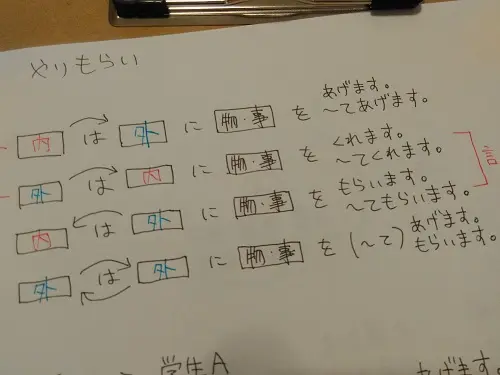 やりもらい
内 は 外 に 物・事 を あげます。
〜てあげます。
外 は 内 に 物・事 を くれます。
〜てくれます。
内 は 外 に 物・事 を もらいます。
〜てもらいます。
外 は 外 に 物・事 を (〜て) あげます。
もらいます。
言
学生A
あげます。